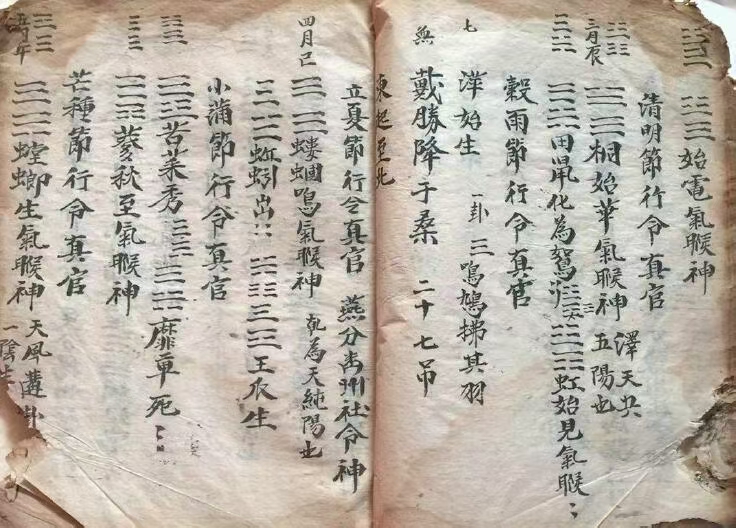 始電氣睺神
清明節行令真官
三月辰
桐始華氣睺神
澤天央
五陽也
田鼠化為鴽
虹始見氣睺
穀雨節行令真官
七
洋始生
一卦
三鳴鳩拂其羽
無
戴勝降于桑
二十七吊
東起至北
立夏節行令真官
燕分幽州社令神
四月巳
螻蟈鳴氣睺神
乾為天純陽也
蚯蚓出
王瓜生
小蒲節行令真官
苦菜秀
靡草死
麥秋至氣睺神
芒種節行令真官
五月午
螳螂生氣睺神
天風
卦
一陰生